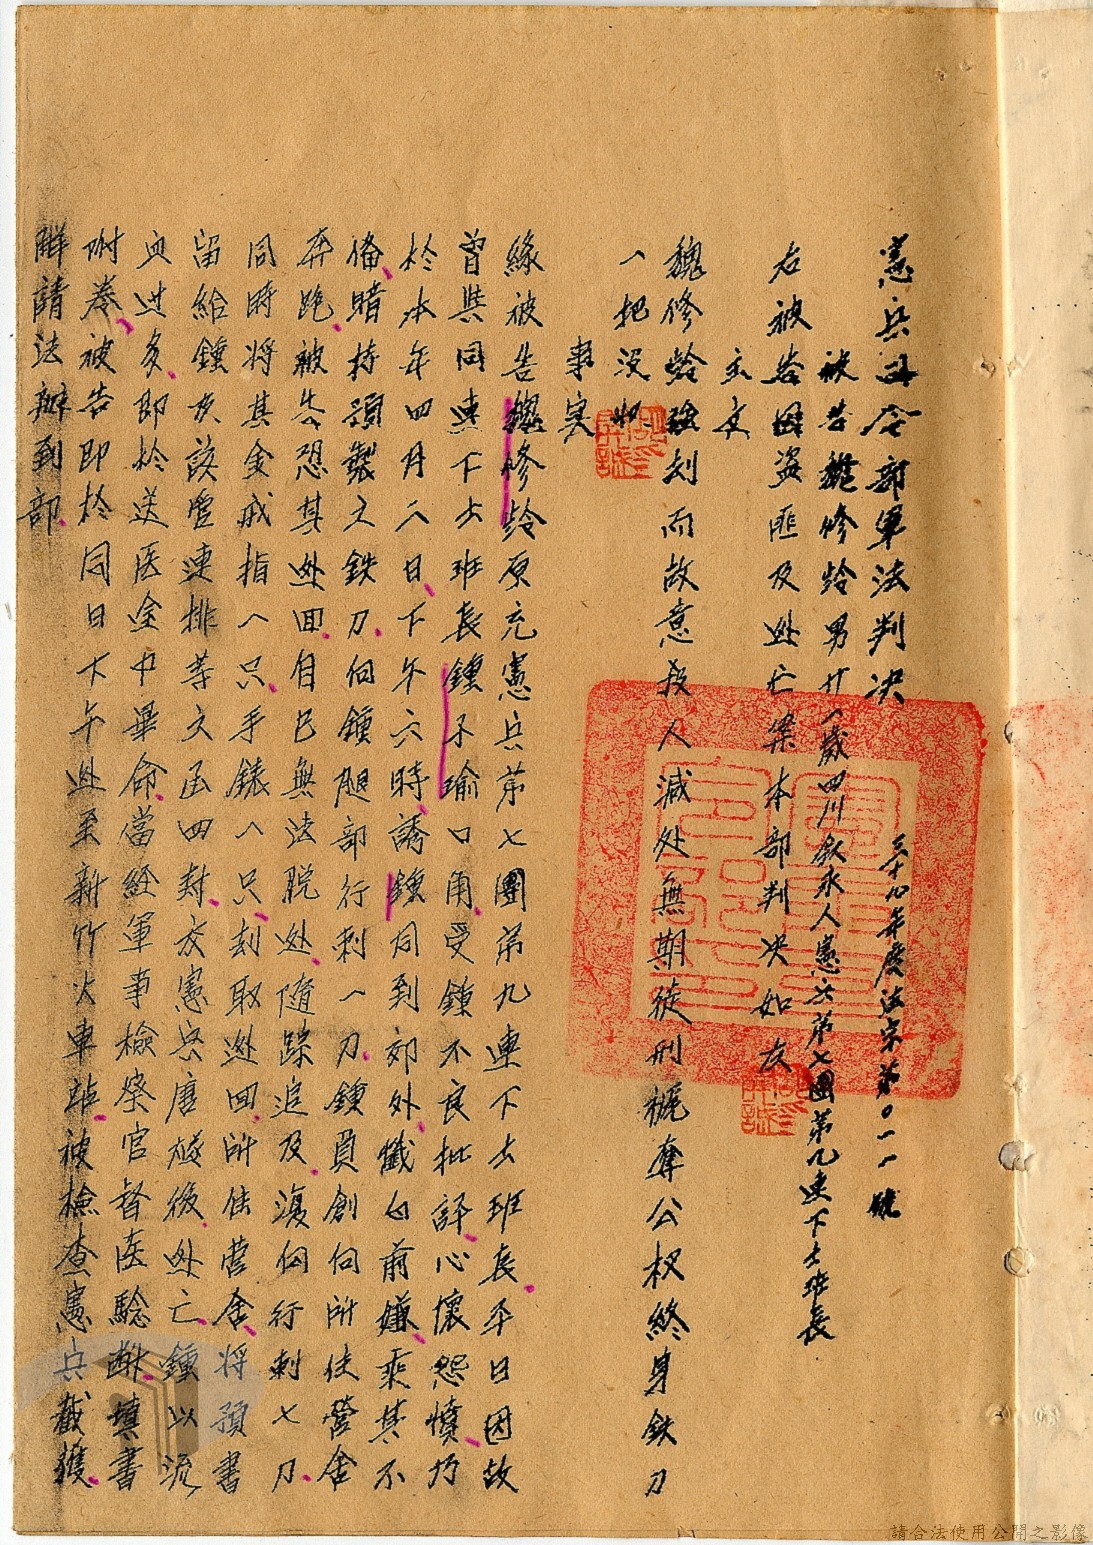 憲兵司令部軍法判決
三十九年度法字第〇一一號
被告魏修齡男廿八歲四川敘永人憲兵第七團第九連下士班長
右被告因盜匪及逃亡案本部判決如左
主文
魏修齡強刼而故意殺人減处無期徒刑褫奪公权終身鉄刀
一把沒收
事实
緣被告魏修齡原充憲兵第七團第九連下士班長平日因故
曾與同連下士班長鍾子瑜口角受鍾不良批評心懷怨憤乃
於本年四月二日下午六時誘鍾同到郊外懺白前嫌乘其不
備暗持預製之鉄刀向鍾腿部行刺一刀鍾負創向所住營舍
奔跑被告恐其逃回自己無法脫逃隨蹤追及復向行刺七刀
同時將其金戒指一只手錶一只刼取逃回所住營舍將預書
留給鍾友該營連排等文函四封交憲兵唐 後逃亡鍾以流
血过多即於送医途中畢命當經軍事檢察官督医驗斷填書
附卷被告即於同日下午逃至新竹火車站被檢查憲兵截獲
解請法辦到部
請合法使用公開之影像